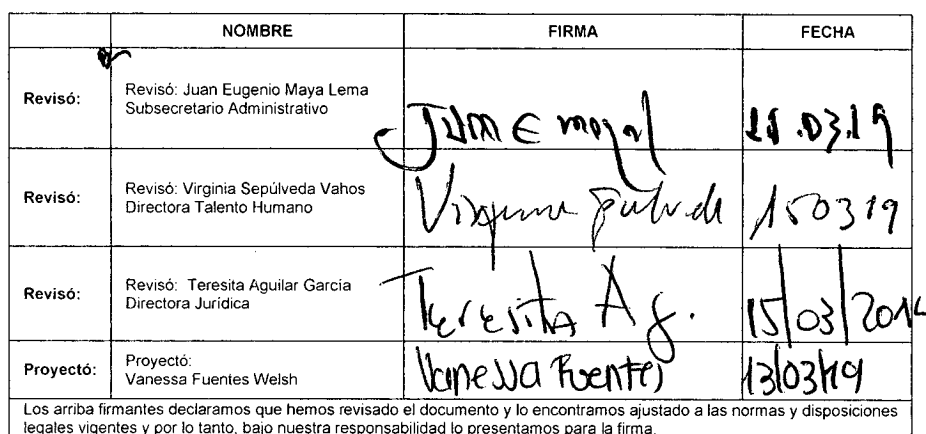 NOMBRE FIRMA FECHA
Revisó: Revisó: Juan Eugenio Maya Lema
Subsecretario Administrativo
Juan E maya .03.19
Revisó: Revisó: Virginia Sepúlveda Vahos
Directora Talento Humano
Virginia Sepúlveda 150319
Revisó: Revisó: Teresita Aguilar García
Directora Jurídica
Teresita A g. 15/03/201
Proyectó: Proyectó:
Vanessa Fuentes Welsh
Vanessa Fuentes 13/03/19
Los arriba firmantes declaramos que hemos revisado el documento y lo encontramos ajustado a las normas y disposiciones
legales vigentes y por lo tanto, bajo nuestra responsabilidad lo presentamos para la firma.